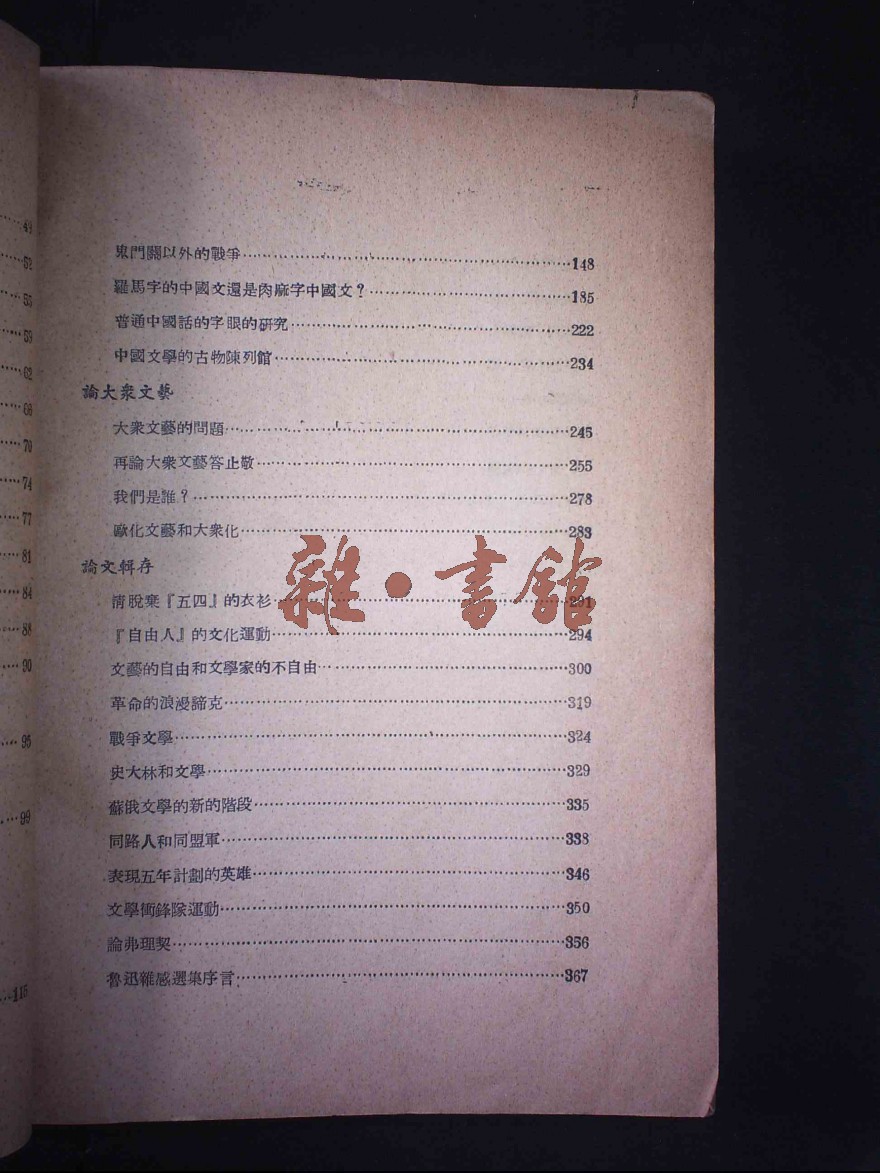 49
52
55
59
62
66
70
74
77
81
84
88
90
95
99
115
鬼門關以外的戰爭……148
羅馬字的中國文還是肉麻字中國文？……185
普通中國話的字眼的研究……222
中國文學的古物陳列館……234
論大衆文藝
大衆文藝的問題……245
再論大衆文藝答止敬……255
我們是誰？……278
歐化文藝和大衆化……283
論文輯存
請脫棄『五四』的衣衫……291
『自由人』的文化運動……294
文藝的自由和文學家的不自由……300
革命的浪漫諦克……319
戰爭文學……324
史大林和文學……329
蘇俄文學的新的階段……335
同路人和同盟軍……338
表現五年計劃的英雄……346
文學衝鋒隊運動……350
論弗理契……356
魯迅雜感選集序言……367
雜·書館